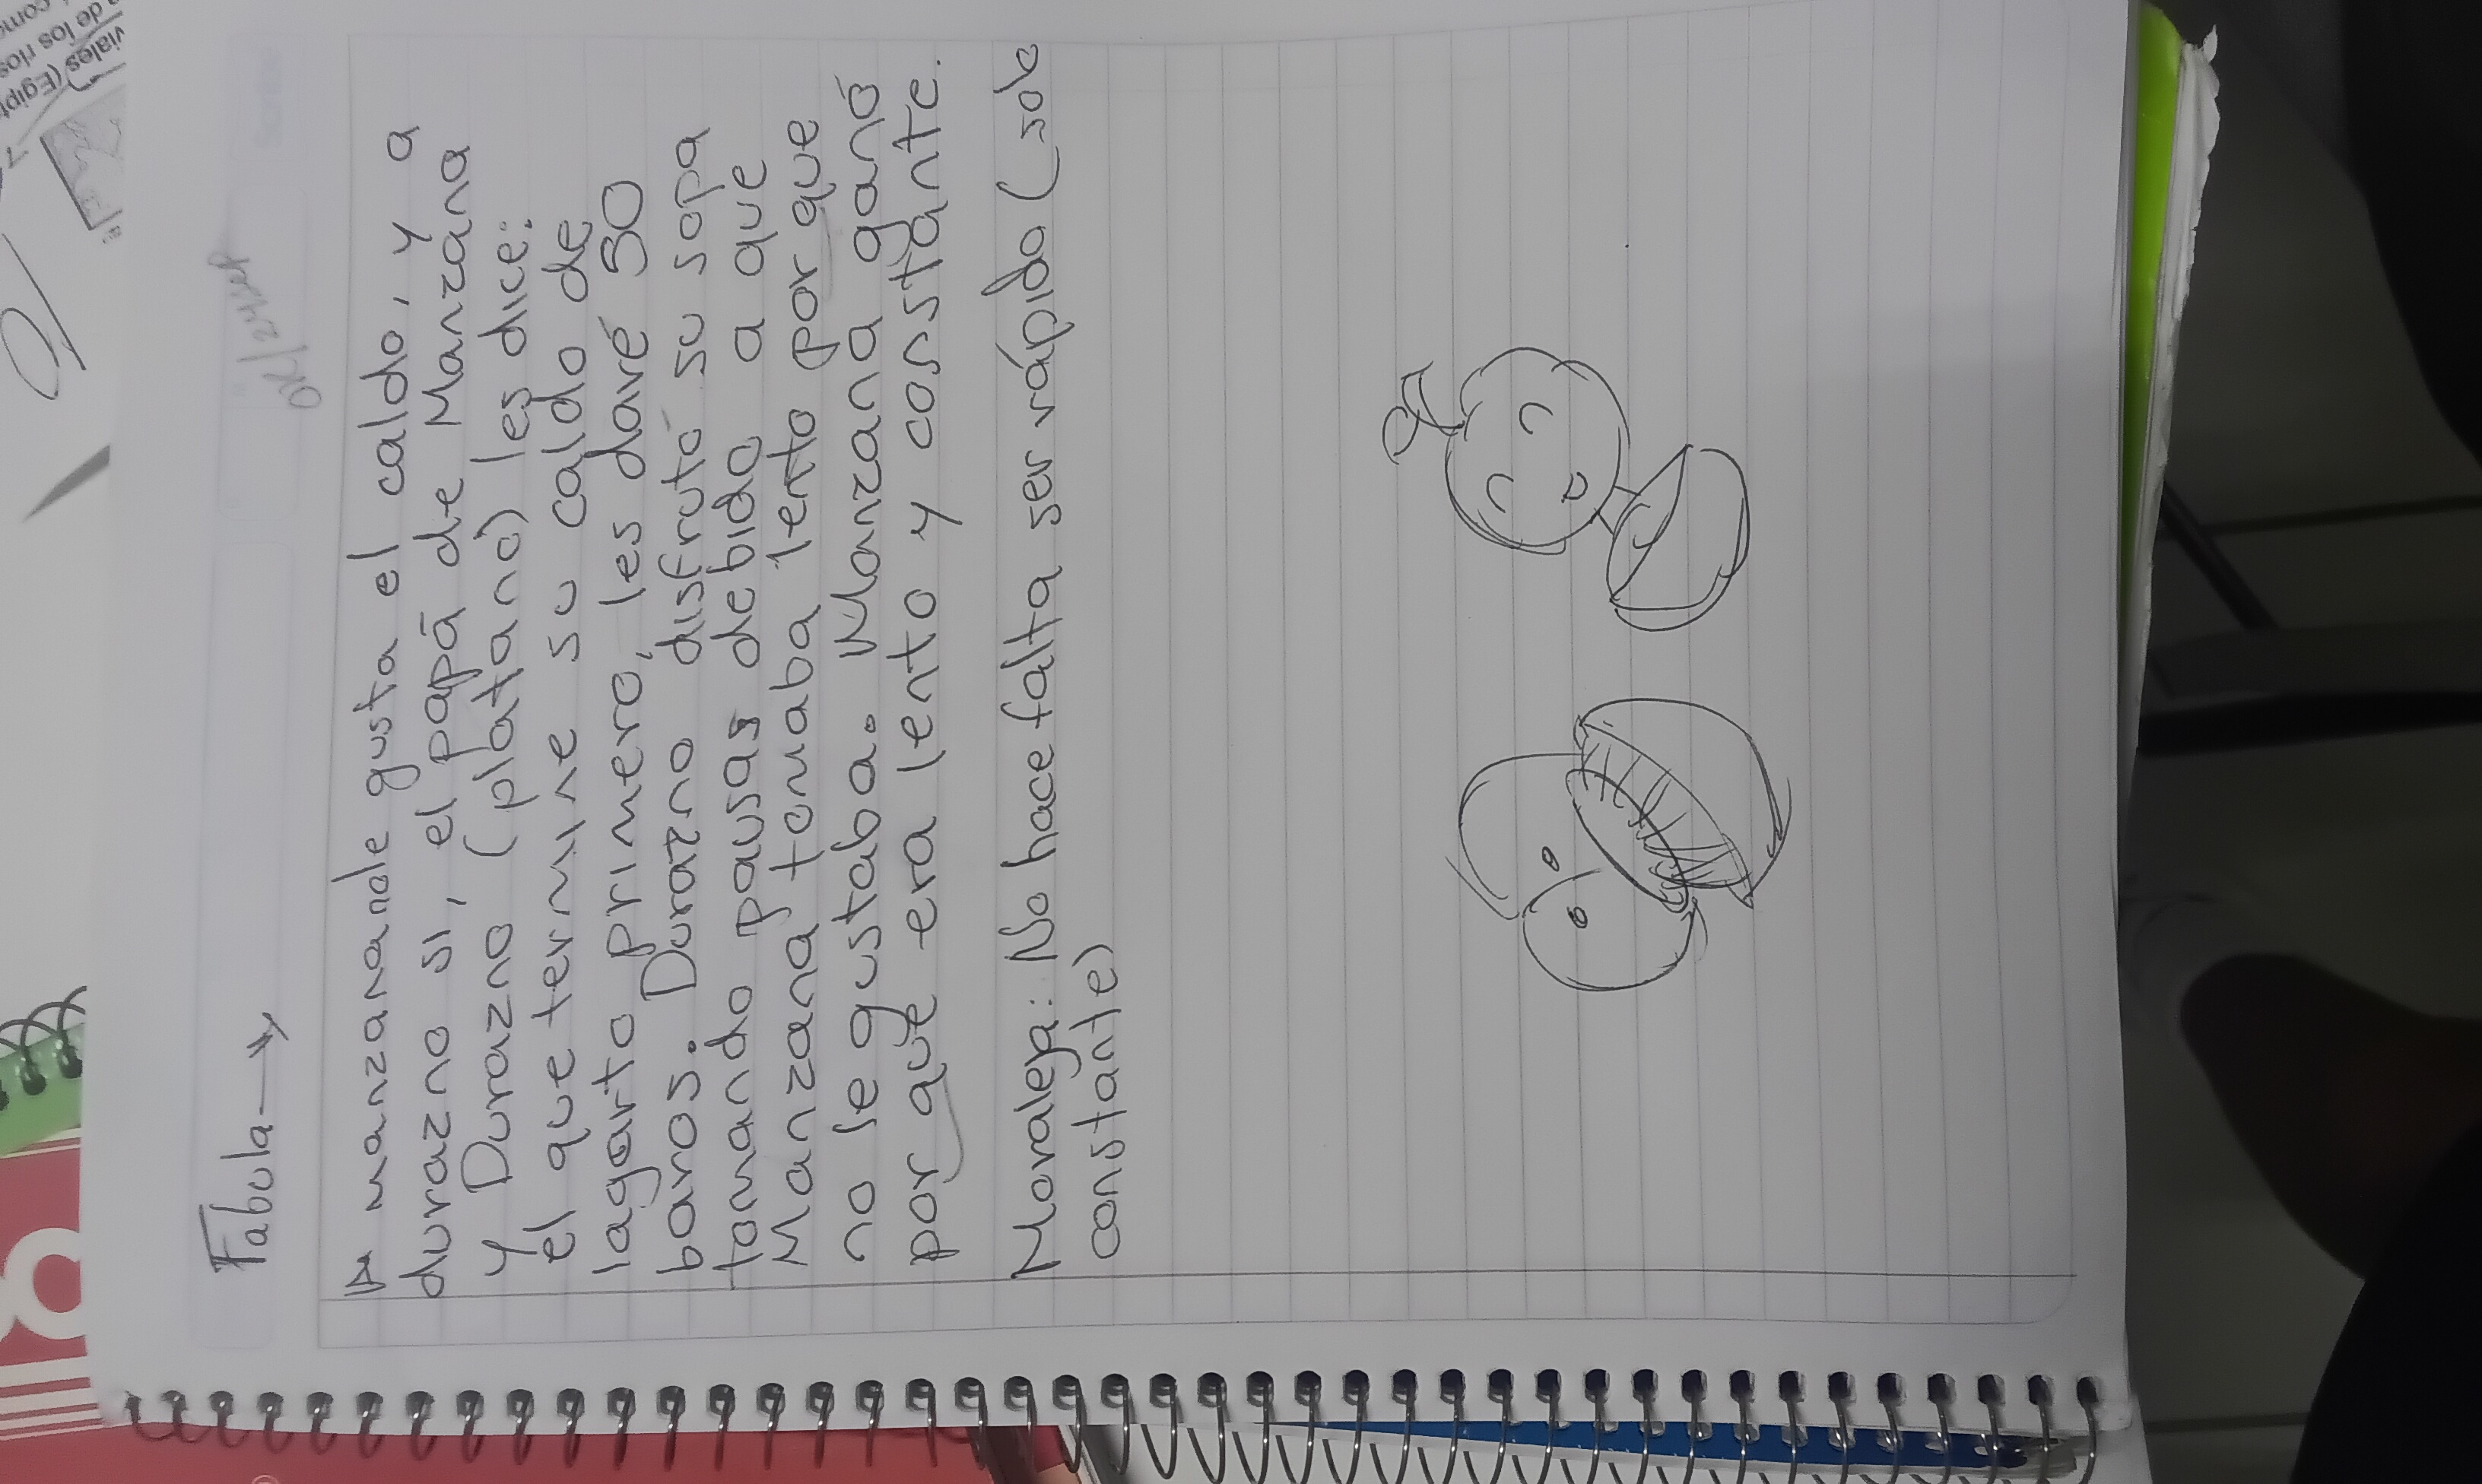 Fabula→
A manzana no le gusta el caldo, y a
durazno si, el papá de Manzana
y Durazno (platano) les dice:
el que termine su caldo de
lagarto primero, les daré 50
baros. Durazno disfrutó su sopa
tomando pausas debido a que
Manzana tomaba lento por que
no le gustaba. Manzana ganó
por que era lento y constante.
Moraleja: No hace falta ser rápido (solo
constante)
de los rios
viales (Egipt